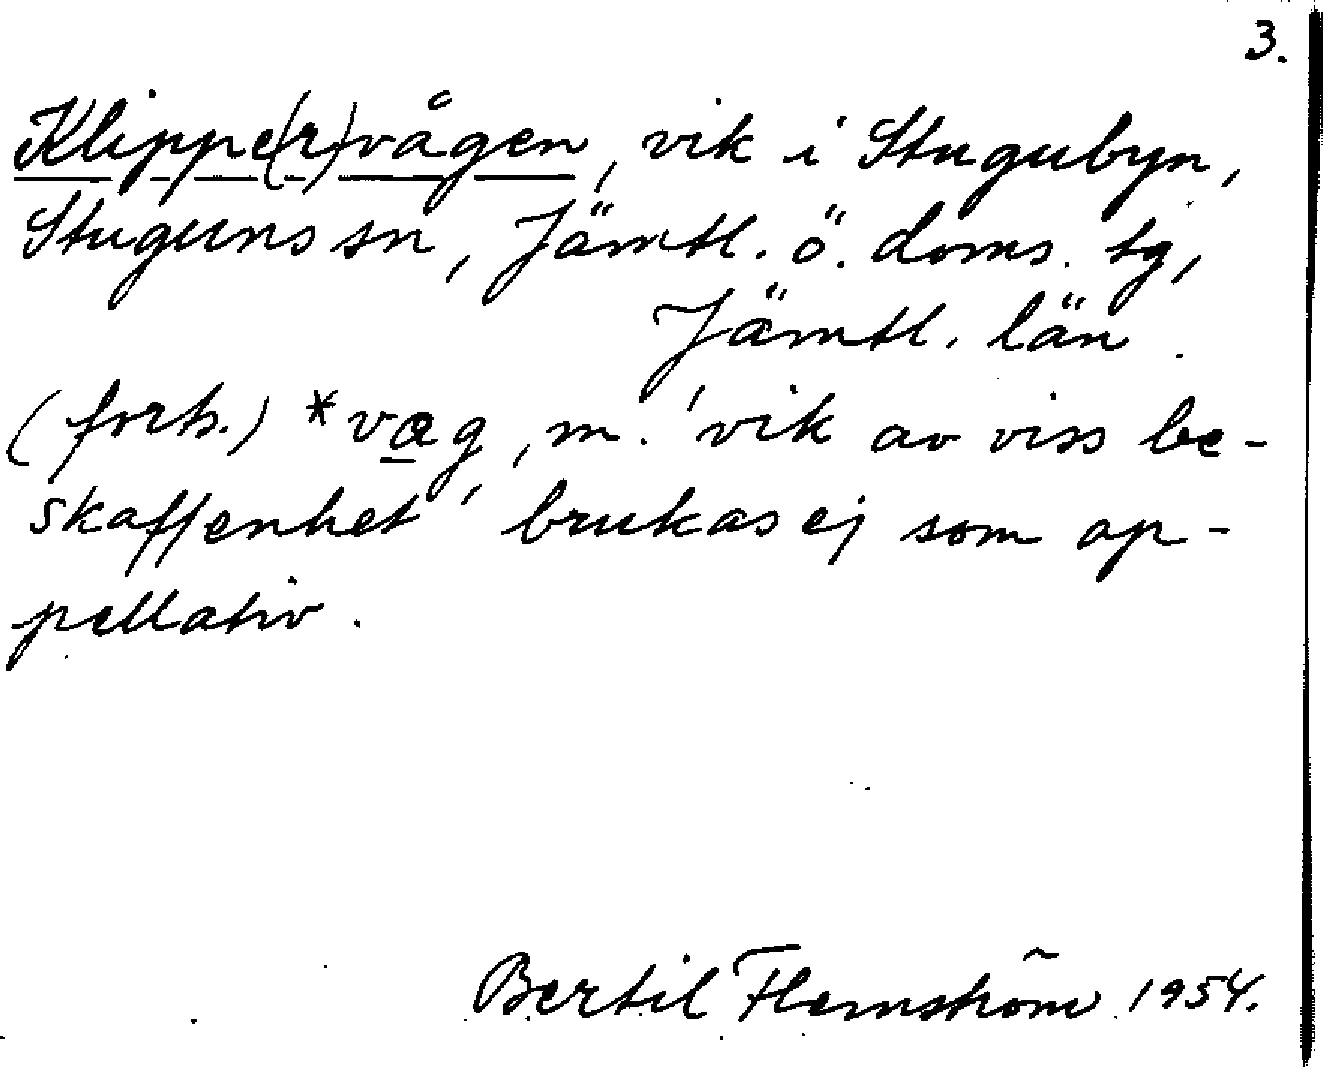 3.
Klippe(r)vågen, vik i Stugubyn,
Stuguns sn, Jämtl. ö. doms. tg,
Jämtl. län.
(forts.) *væg, m. 'vik av viss be-
skaffenhet' brukas ej som ap-
pellativ.
Bertil Flemström 1954.